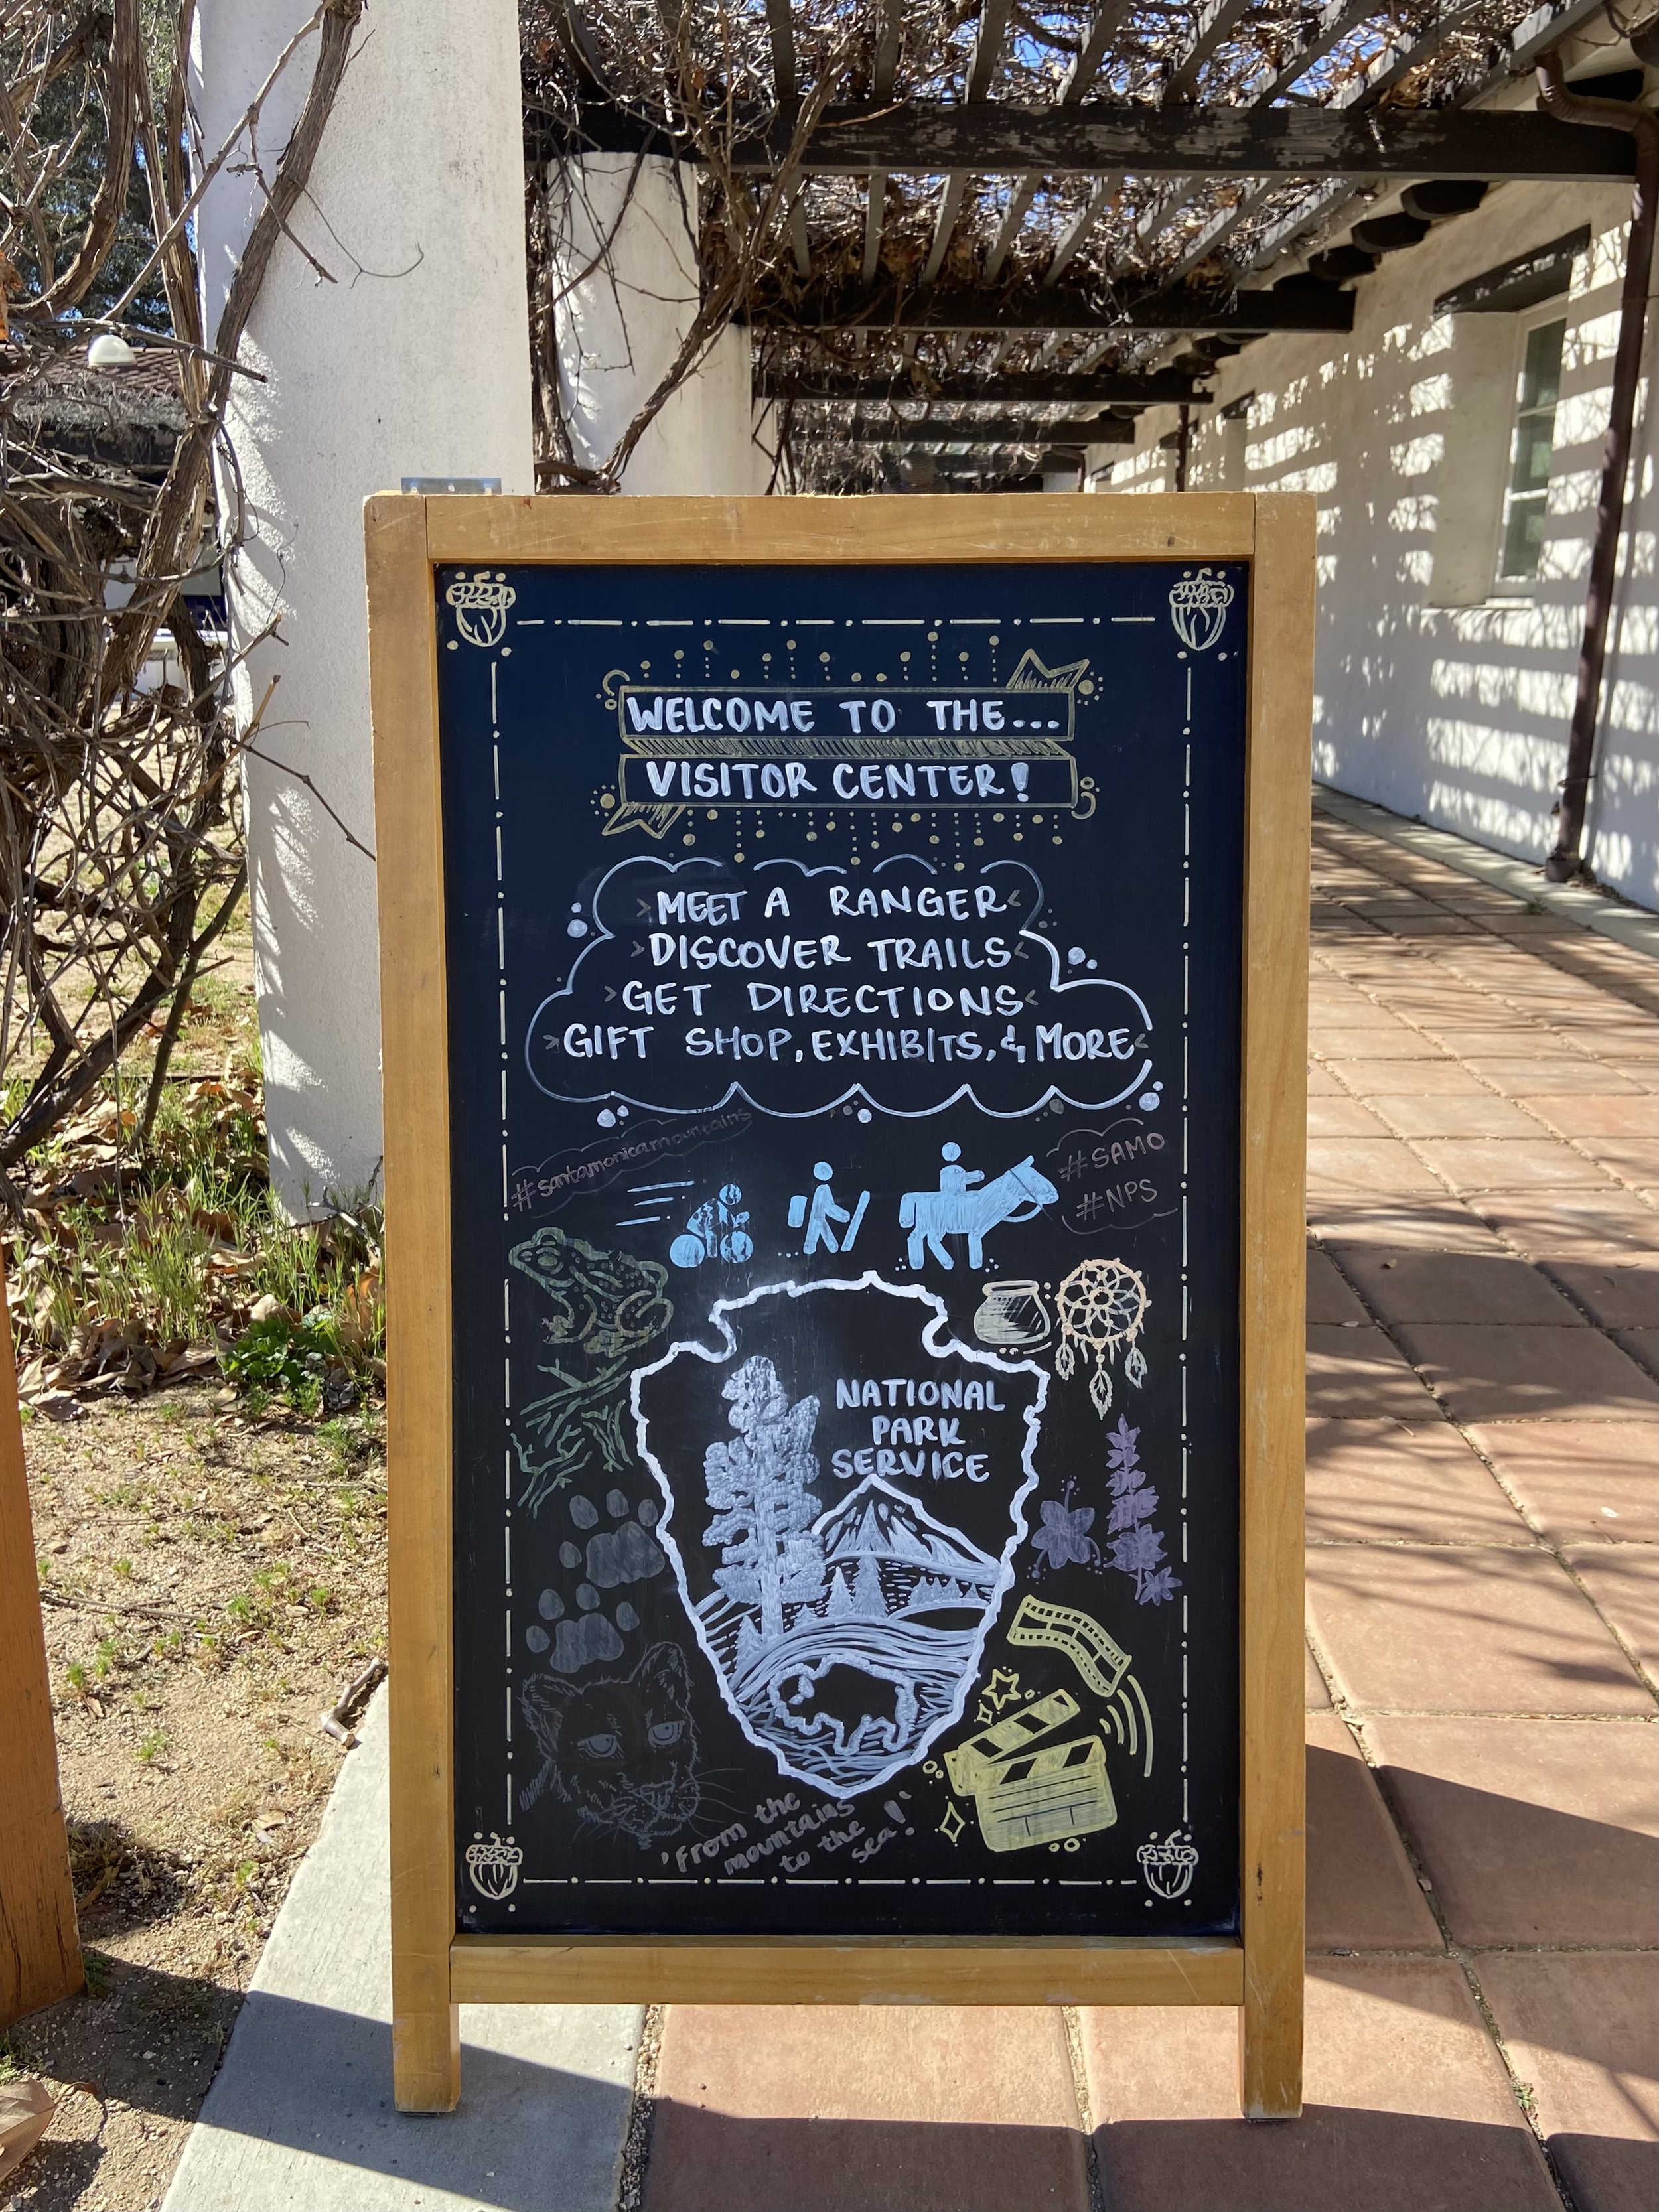 WELCOME TO THE...
VISITOR CENTER!
>MEET A RANGER<
>DISCOVER TRAILS<
>GET DIRECTIONS<
>GIFT SHOP, EXHIBITS, & MORE<
#santamonicamountains
#SAMO
#NPS
NATIONAL
PARK
SERVICE
'from the
mountains
to the
sea!'